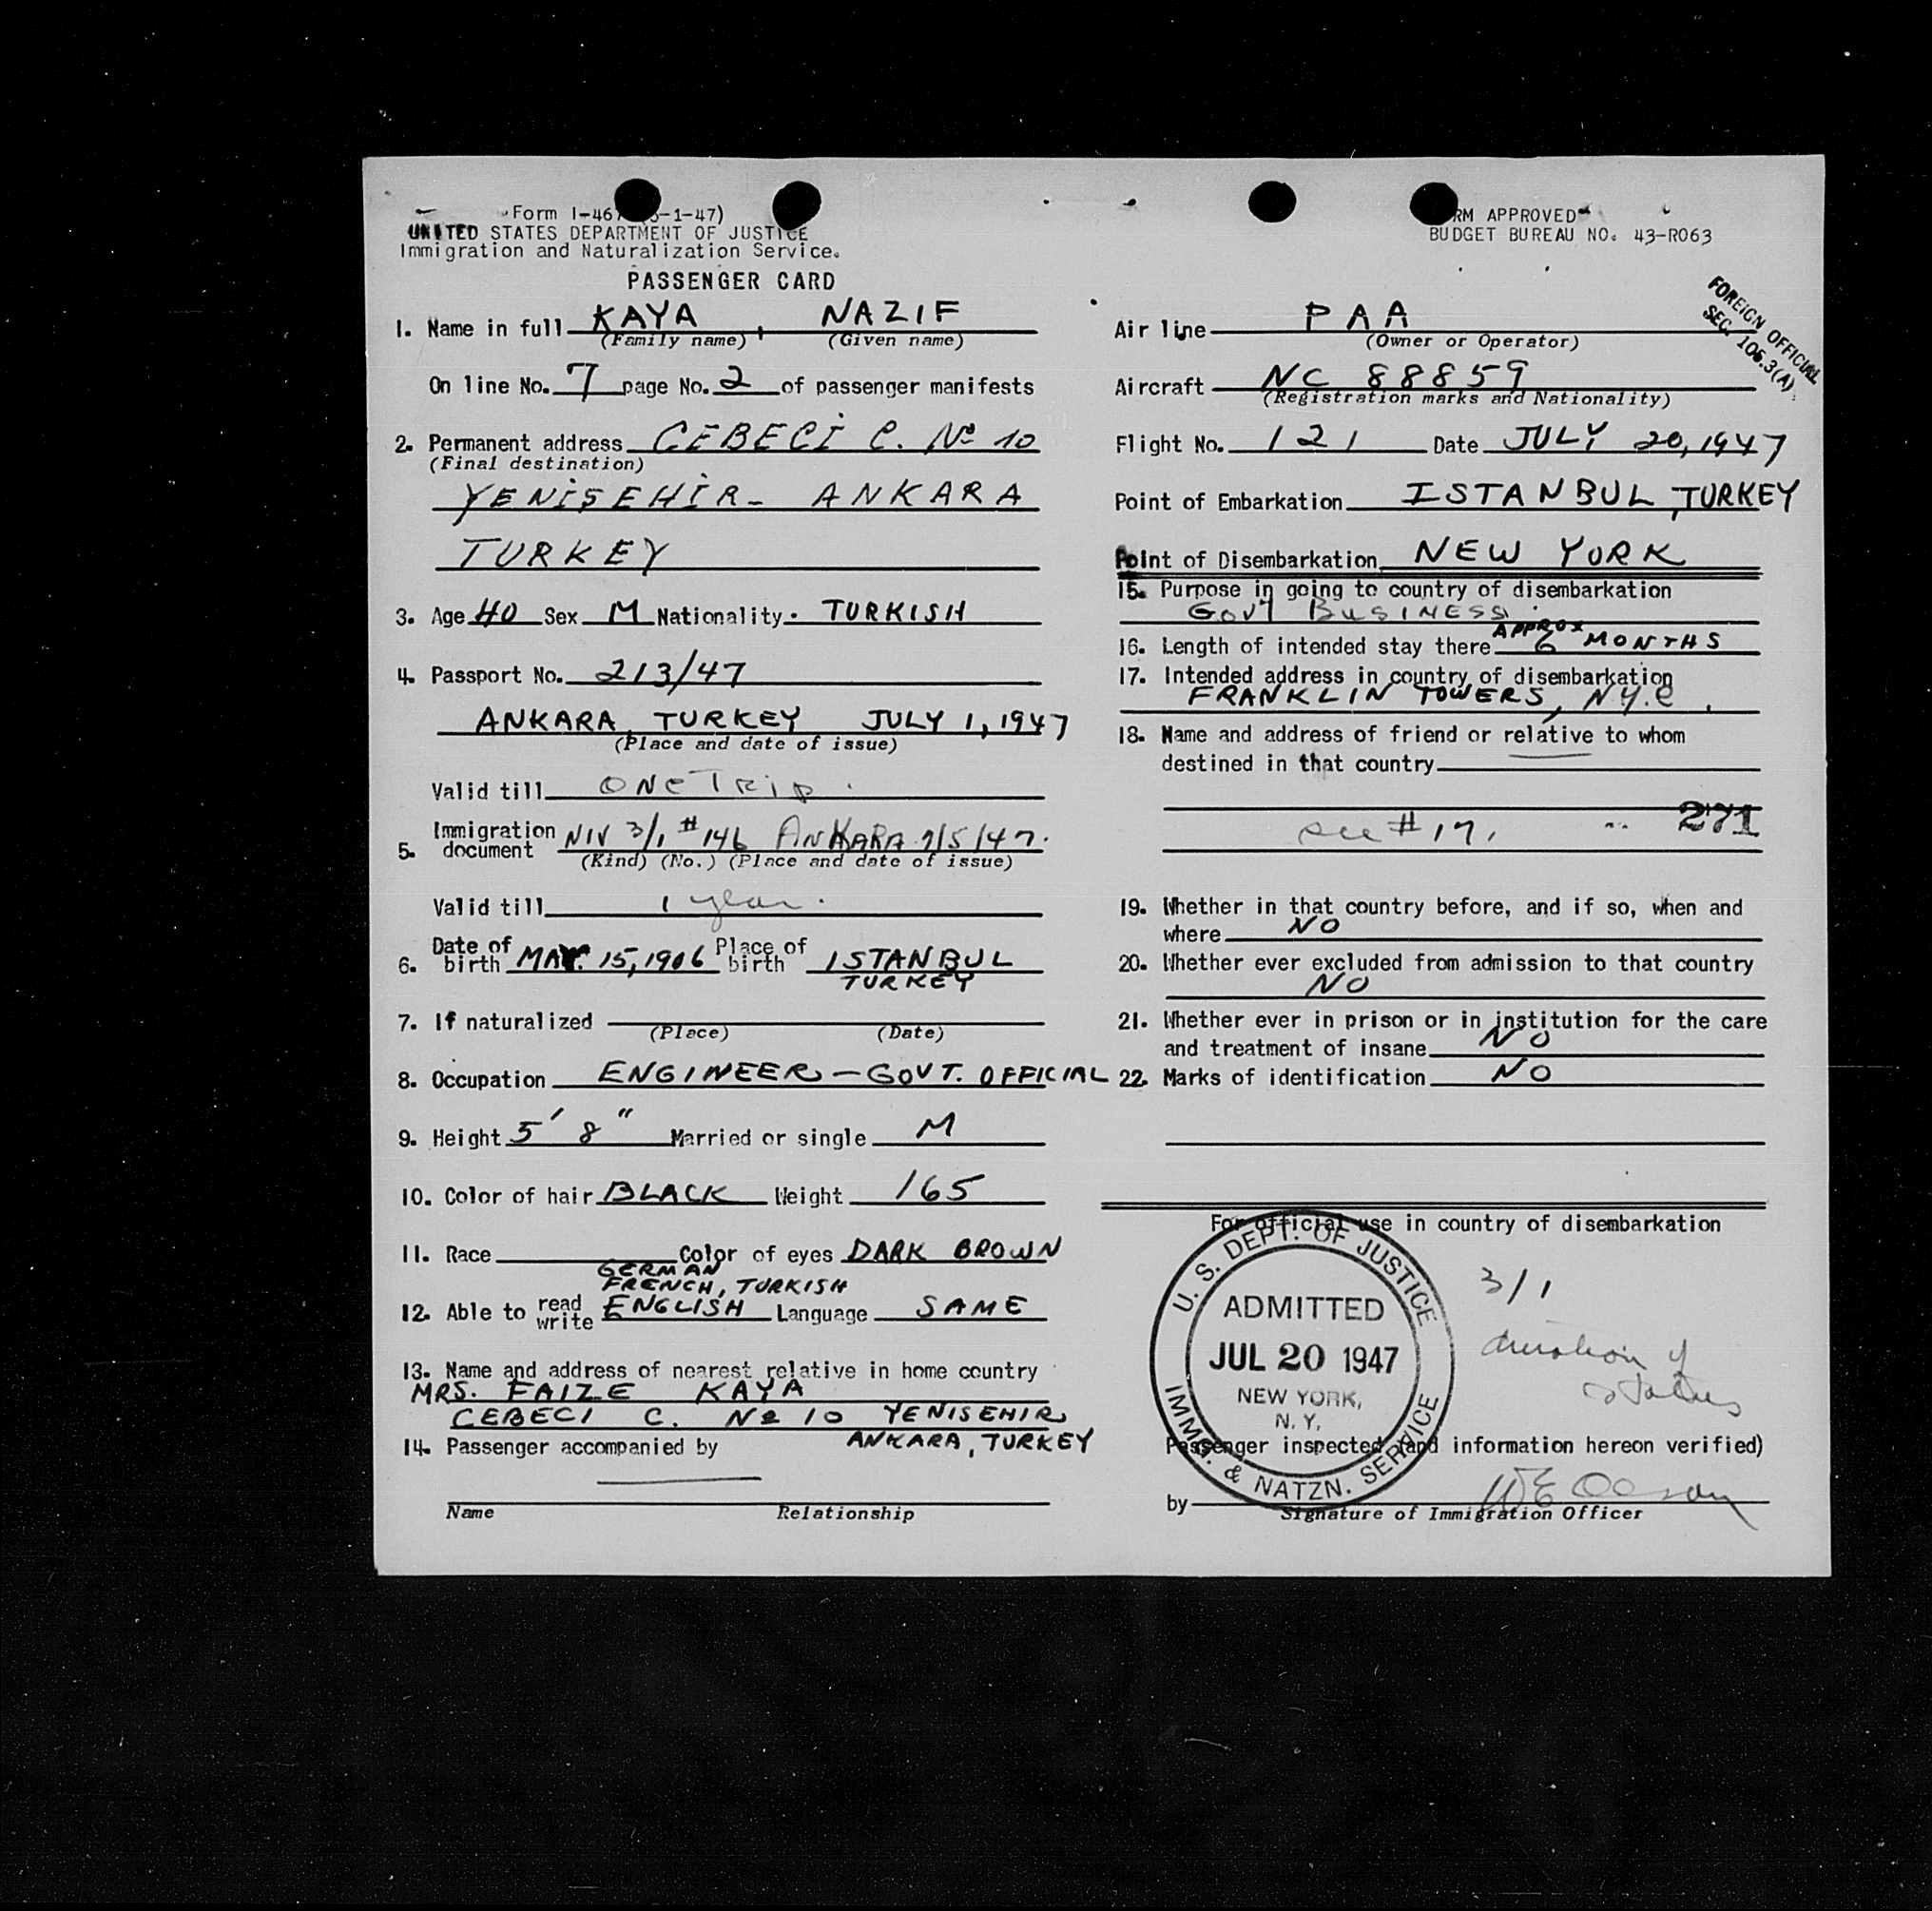 Form I-467 5-1-47)
UNITED STATES DEPARTMENT OF JUSTICE
Immigration and Naturalization Service.
PASSENGER CARD
1. Name in full KAYA, NAZIF
(Family name) (Given name)
On line No. 7 page No. 2 of passenger manifests
2. Permanent address CEBECİ C. No 10
(Final destination)
YENİŞEHİR - ANKARA
TURKEY
3. Age 40 Sex M Nationality. TURKISH
4. Passport No. 213/47
ANKARA, TURKEY JULY 1, 1947
(Place and date of issue)
Valid till ONE TRIP.
5. Immigration document NIV 3/1 # 146 ANKARA 7/5/47.
(Kind) (No.) (Place and date of issue)
Valid till 1 year.
6. Date of birth MAY. 15, 1906 Place of birth ISTANBUL
TURKEY
7. If naturalized
(Place) (Date)
8. Occupation ENGINEER - GOVT. OFFICIAL
9. Height 5' 8" Married or single M
10. Color of hair BLACK Weight 165
11. Race Color of eyes DARK BROWN
GERMAN
FRENCH, TURKISH
12. Able to read write ENGLISH Language SAME
13. Name and address of nearest relative in home country
MRS. FAIZE KAYA
CEBECI C. No 10 YENISEHIR
ANKARA, TURKEY
14. Passenger accompanied by
Name Relationship
RM APPROVED
BUDGET BUREAU NO. 43-R063
FOREIGN OFFICIAL
SEC. 105.3(A)
Air line PAA
(Owner or Operator)
Aircraft NC 88859
(Registration marks and Nationality)
Flight No. 121 Date JULY 20, 1947
Point of Embarkation ISTANBUL, TURKEY
Point of Disembarkation NEW YORK
15. Purpose in going to country of disembarkation
GOVT BUSINESS.
16. Length of intended stay there APPROX 6 MONTHS
17. Intended address in country of disembarkation
FRANKLIN TOWERS, N.Y.C.
18. Name and address of friend or relative to whom
destined in that country
271
see # 17.
19. Whether in that country before, and if so, when and
where NO
20. Whether ever excluded from admission to that country
NO
21. Whether ever in prison or in institution for the care
and treatment of insane NO
22. Marks of identification NO
For official use in country of disembarkation
U. S. DEPT. OF JUSTICE
ADMITTED
JUL 20 1947
NEW YORK,
N. Y.
IMMG. & NATZN. SERVICE
3/1
duration of
status
Passenger inspected (and information hereon verified)
by
Signature of Immigration Officer